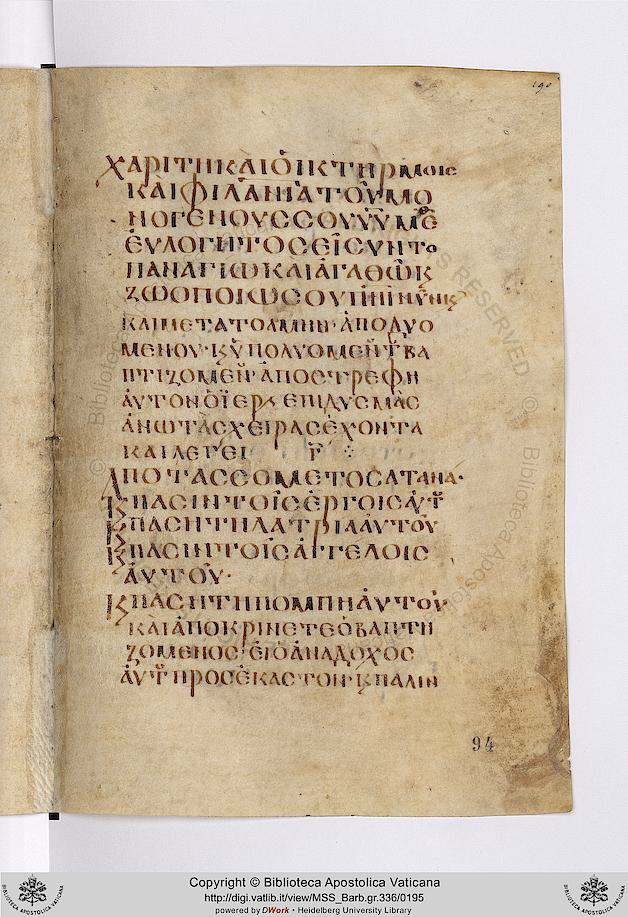 190
ΧΑΡΙΤΗ ΚΑΙ ΟΙΚΤΗΡΜΟΙΣ
ΚΑΙ ΦΙΛΑΝΙΑ ΤΟΥ ΜΟ
ΝΟΓΕΝΟΥΣ ΣΟΥ ΥΥ ΜΕ
ΕΥΛΟΓΗΤΟΣ ΕΙ ΣΥΝ ΤΟ
ΠΑΝΑΓΙΩ ΚΑΙ ΑΓΑΘΩ Κ
ΖΩΟΠΟΙΩ ΣΟΥ ΠΝΙ ΝΥΝ Κ
ΚΑΙ ΜΕΤΑ ΤΟ ΑΜΗΝ· ΑΠΟΔΥΟ
ΜΕΝΟΥ· Κ ΥΠΟΛΥΟΜΕΝ ΤΒΑ
ΠΤΙΖΟΜΕΝ· ΑΠΟΣΤΡΕΦΗ
ΑΥΤΟΝ Ο ΙΕΡ ΕΠΙ ΔΥΣΜΑΣ
ΑΝΩ ΤΑΣ ΧΕΙΡΑΣ ΕΧΟΝΤΑ
ΚΑΙ ΛΕΓΕΙ Γ
ΑΠΟΤΑΣΣΟΜΕ ΤΟ ΣΑΤΑΝΑ·
Κ ΠΑΣΙΝ ΤΟΙΣ ΕΡΓΟΙΣ ΑΥΤ
Κ ΠΑΣΗ ΤΗ ΛΑΤΡΙΑ ΑΥΤΟΥ
Κ ΠΑΣΙΝ ΤΟΙΣ ΑΓΓΕΛΟΙΣ
ΑΥΤΟΥ·
Κ ΠΑΣΗ ΤΗ ΠΟΜΠΗ ΑΥΤΟΥ
ΚΑΙ ΑΠΟΚΡΙΝΕΤΕ Ο ΒΑΠΤΗ
ΖΟΜΕΝΟΣ· ΕΙ Ο ΑΝΑΔΟΧΟΣ
ΑΥΤ ΠΡΟΣ ΕΚΑΣΤΟΝ· Κ ΠΑΛΙΝ
94
Copyright © Biblioteca Apostolica Vaticana
http://digi.vatlib.it/view/MSS_Barb.gr.336/0195
powered by DWork • Heidelberg University Library